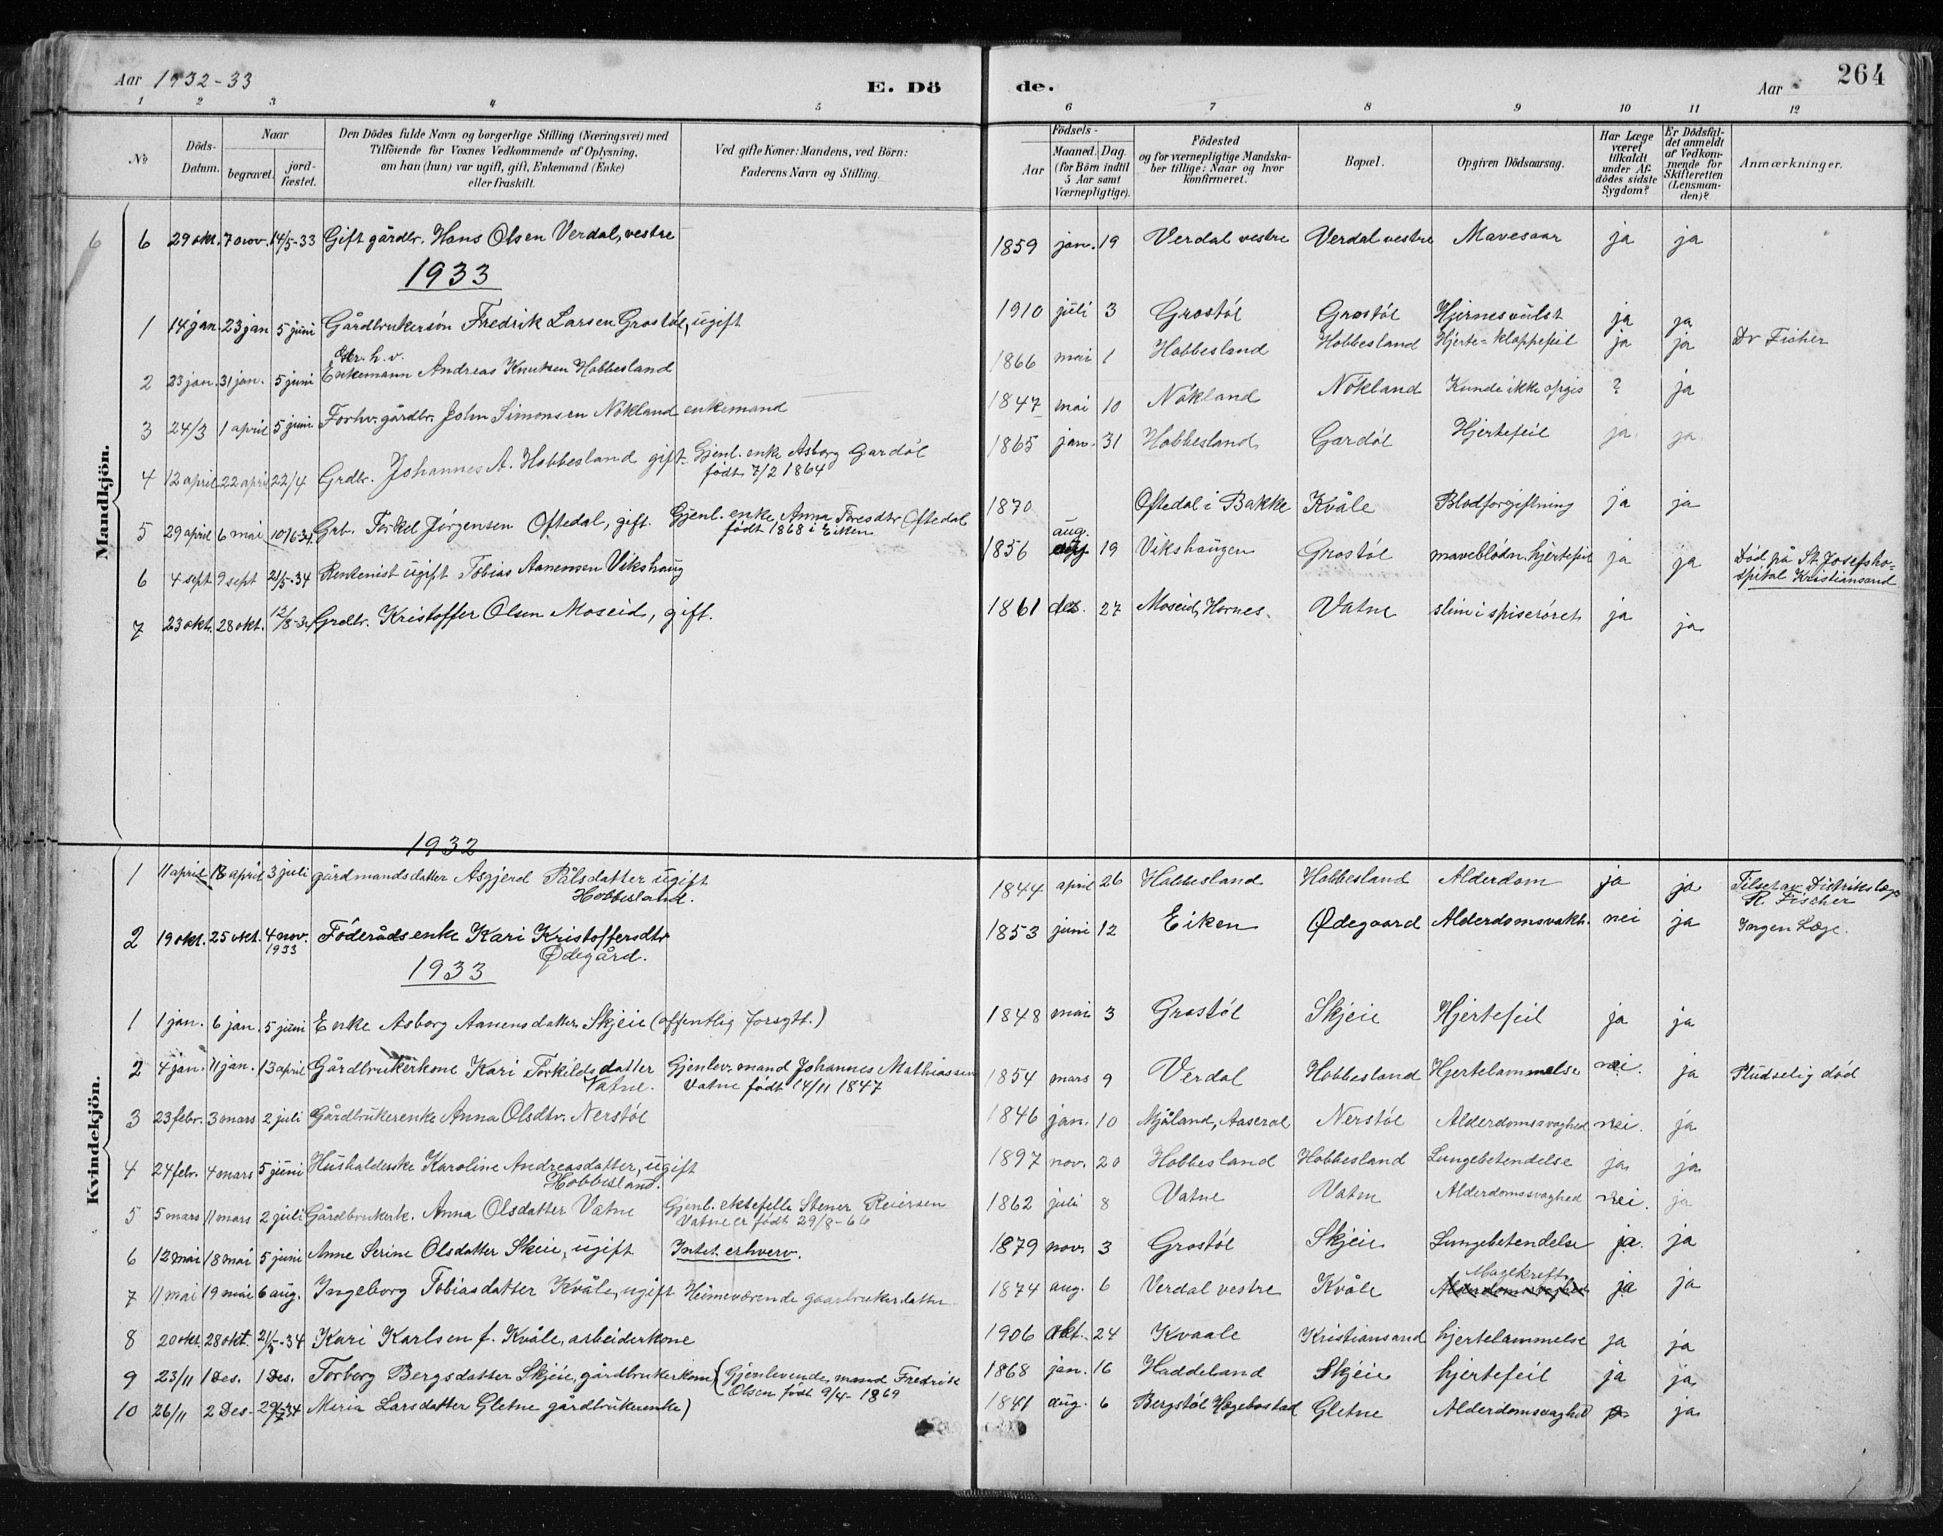 Aar 1932-33 E. Dö de. Aar 264
1 2 3 4 5 6 7 8 9 10 11 12
No
Döds-Datum.
Naar
begravet.
jord-fæstet.
Den Dödes fulde Navn og borgerlige Stilling (Næringsvei) med
Tilföiende for Voxnes Vedkommende af Oplysning,
om han (hun) var ugift, gift, Enkemand (Enke)
eller fraskilt.
Ved gifte Koner: Mandens, ved Börn:
Faderens Navn og Stilling.
Födsels-
Aar
Maaned. Dag.
(for Börn indtil
5 Aar samt
Værnepligtige).
Födested
og for værnepligtige Mandska-
ber tillige: Naar og hvor
konfirmeret.
Bopæl.
Opgiven Dödsaarsag.
Har Læge
været
tilkaldt
under Af-
dödes sidste
Sygdom?
Er Dödsfal-
det anmeldt
af Vedkom-
mende for
Skifteretten
(Lensman-
den)?
Anmærkninger.
Mandkjön.
6
6 29 okt. 7 nov. 14/5-33 Gift gårdbr. Hans Olsen Verdal, vestre 1859 jan. 19 Verdal vestre Verdal vestre Mavesaar ja ja
1933
1 14 jan. 23 jan 5 juni Gårdbrukersön Fredrik Larsen Grostöl, ugift 1910 juli 3 Grostöl Grostöl Hjernesvülst ja ja
2 23 jan. 31 jan. 5 juni h. v. Enkemann Andreas Knutsen Hobbesland 1866 mai 1 Hobbesland Hobbesland Hjerte-klappefeil ja ja Dr Fisher
3 24/3 1 april 5 juni Forhv. gårdbr. John Simonsen Nökland enkemand 1847 mai 10 Nökland Nökland Kunde ikke opgis ? ja
4 12 april 22 april 22/4 Grdbr. Johannes A. Hobbesland gift. Gjenl. enke Asborg Gardöl
födt 7/2 1864 1865 jan. 31 Hobbesland Gardöl Hjertefeil ja. ja.
5 29 april 6 mai 10/6-34. Grb. Torkel Jörgensen Oftedal, gift. Gjenl. enke Anna Toresdtr Oftedal
födt 1868 i Eiken 1870 Oftedal i Bakke Kvåle Blodforgiftning ja ja
6 4 sept 9 sept 21/5-34 Rentenist ugift Tobias Aanensen Vikshaug 1856 aug. 19 Vikshaugen Grostöl maveblødn. hjertefeil ja ja Död på St. Josefsho-
spital Kristiansand
7 23 okt. 28 okt. 12/8-34 Grdbr. Kristoffer Olsen Moseid, gift. 1861 des. 27 Moseid, Hornes. Vatne slim i spiserøret ja ja
Kvindekjön.
1932
1 11 april 18 april 3 juli gårdmandsdatter Asgjerd Pålsdatter ugift
Hobbesland. 1844 april 26 Hobbesland Hobbesland Alderdom ja ja Tilset av Distriktslæge
R. Fischer
2 19 okt. 25 okt. 4 nov. 1933 Föderåds enke Kari Kristoffersdtr
Ødegård. 1853 juni 12 Eiken Ødegaard Alderdomsvakh. nei ja Ingen Læge.
1933
1 1 jan. 6 jan. 5 juni Enke Asborg Aanensdatter Skjeie (offentlig forsygt.) 1848 mai 3 Grostöl Skjeie Hjertefeil ja ja
2 4 jan. 11 jan. 13 april Gårdbrukerkone Kari Torkildsdatter
Vatne. Gjenlev. mand Johannes Mathiassen
Vatne födt 14/11 1847 1854 mars 9 Verdal Hobbesland Hjertelammelse nei. ja Pludselig död
3 23 febr. 3 mars 2 juli Gårdbrukerenke Anna Olsdtr. Nerstöl 1846 jan. 10 Mjåland, Aaseral Nerstöl Alderdomssvaghed nei. ja
4 24 febr. 4 mars 5 juni Husholderske Karoline Andreasdatter, ugift
Hobbesland. 1897 nov. 20 Hobbesland Hobbesland Lungebetendelse ja. ja
5 5 mars 11 mars 2 juli Gårdbrukerk. Anna Olsdatter Vatne Gjenl. ektefelle Stener Reiersen
Vatne er födt 29/8-66 1862 juli 8 Vatne Vatne Alderdomssvaghed nei. ja
6 12 mai 18 mai 5 juni Anne Serine Olsdatter Skeie, ugift Intet erhverv. 1879 nov. 3 Grostöl Skjeie Lungebetendelse ja. ja
7 11 mai 19 mai 6 aug. Ingeborg Tobiasdatter Kvåle, ugift Heimeværende gaarbrukerdatter 1874 aug. 6 Verdal vestre Kvåle Magekreft ja ja
8 20 okt. 28 okt. 21/5-34 Kari Karlsen f. Kvåle, arbeiderkone 1906 okt. 24 Kvaale Kristiansand hjertelammelse ja ja
9 23/11 1 Des. 1 Des. Torborg Bergsdatter Skjeie, gårdbrukerkone (Gjenlevende mand Fredrik
Olsen födt 9/4-1869 1868 jan. 16 Haddeland Skjeie hjertefeil ja ja
10 26/11 2 Des. Maria Larsdatter Gletne gårdbrukerenke) 1841 aug. 6 Bergstöl Hægebostad Gletne Alderdomsvaghed ja